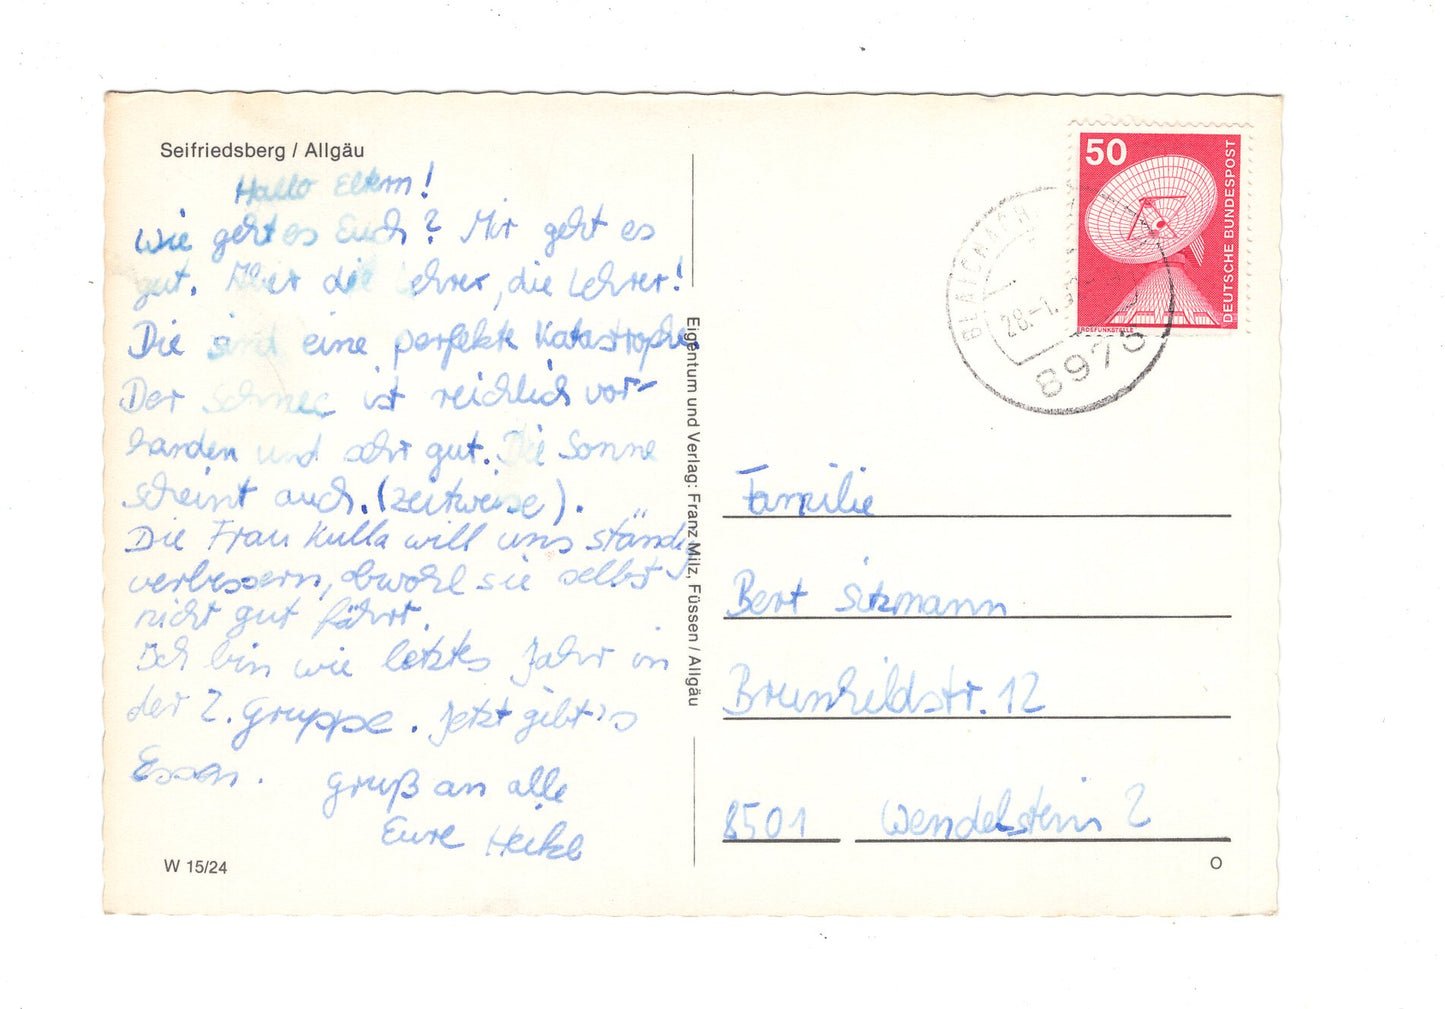 Seifriedsberg / Allgäu
Hallo Eltern!
Wie geht es Euch? Mir geht es
gut. Aber die Lehrer, die Lehrer!
Die sind eine perfekte Katastrophe.
Der Schnee ist reichlich vor-
handen und sehr gut. Die Sonne
scheint auch. (zeitweise).
Die Frau Kulla will uns ständig
verbessern, obwohl sie selbst
nicht gut fährt.
Ich bin wie letztes Jahr in
der 2. Gruppe. Jetzt gibt's
Essen.
Gruß an alle
Eure Heike
W 15/24
Eigentum und Verlag: Franz Milz, Füssen / Allgäu
50
DEUTSCHE BUNDESPOST
ERDEFUNKSTELLE
BLAICHACH
28.-1.
8973
Familie
Bert Sitzmann
Brunhildstr. 12
8501 Wendelstein 2
O